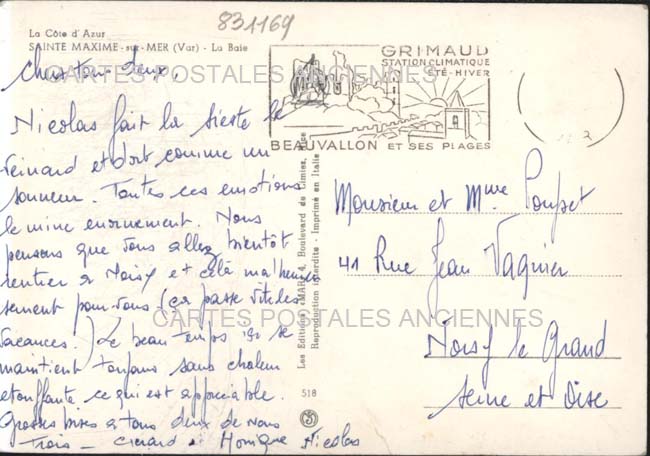 831169
La Côte d'Azur
SAINTE MAXIME-sur-MER (Var) - La Baie
GRIMAUD
STATION CLIMATIQUE
ÉTÉ-HIVER
BEAUVALLON ET SES PLAGES
CARTES POSTALES ANCIENNES
Chers tous deux,
Nicolas fait la sieste le
feinard et dort comme un
sonneur. Toutes ces emotions
le mine enormement. Nous
pensons que vous allez bientôt
rentrer à Noisy et celà malheureu
sement pour vous (ça passe vite les
vacances.) Le beau temps ici se
maintient toujours sans chaleur
etouffante ce qui est appréciable.
Grosses bises à tous deux de nous
Trois - Gerard Monique Nicolas
Les Editions "MAR", 4, Boulevard de Cimiez, Nice
Reproduction interdite - Imprimé en Italie
518
Monsieur et Mme Poupet
41 Rue Jean Vaquier
Noisy le Grand
Seine et Oise
CARTES POSTALES ANCIENNES